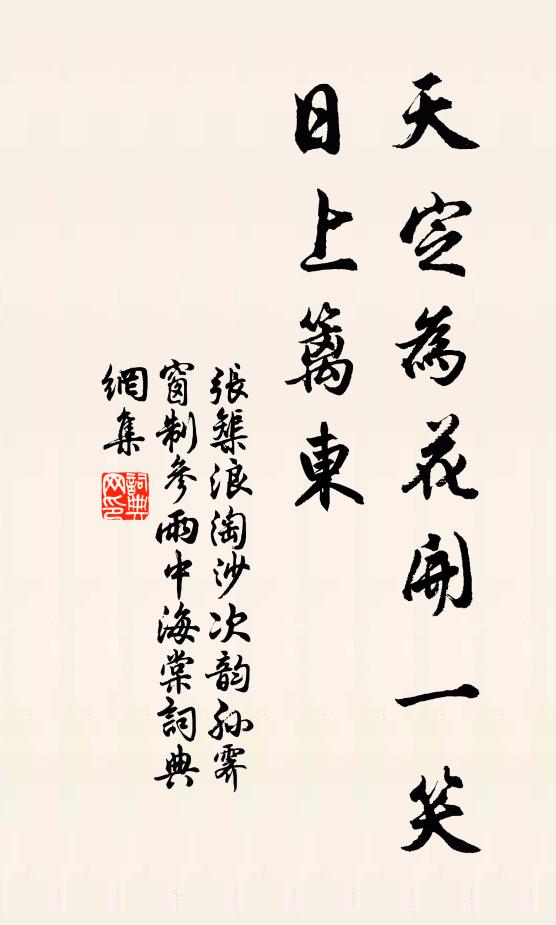 天定為花開一笑
日上籬東
張榘浪淘沙次韵孙霽
窗制參雨中海棠詞典
網集
詞典
网印